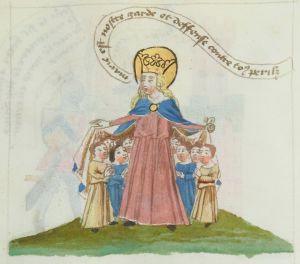 marie est nostre garde et deffense contre to9 perilz